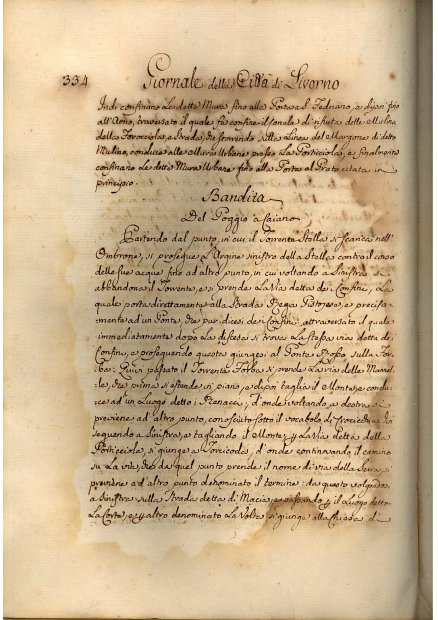 334 Giornale della Città di Livorno
Indi confinano Le dette Mura fino alla Porta a S. Fediano, e di poi fino
all'Arno, traversato il quale fà confine il Canale di rifiuto delle Mulina
della Porticciola, e Strada, che correndo sulla Linea del Margone di detto
Mulino, conduce alle Mura Urbane presso La Porticciola, e finalmente
confinano Le dette Mura Urbane fino alla Porta al Prato citata in
principio
Bandita
Del Poggio a Caiano
Partendo dal punto, in cui il Torrente Stella si scarica nell'
Ombrone, si prosegue L'Argine sinistro della Stella contro il corso
delle sue acque fino ad altro punto, in cui voltando a Sinistra si
abbandona il Torrente, e si prende La Via detta dei Confini, La
quale porta direttamente alla Strada Regia Pistojese, e precisa
mente ad un Ponte, che pur dicesi dei Confini: attraversato il quale
immediatamente dopo La discesa si trova La stessa via detta dei
Confini, e proseguendo questa giungesi al Ponte Rosso sulla Fur
ba: Quivi passato il Torrente Furba si prende La via delle
che prima si estende in piano, e di poi taglia il Monte, e condu
ce ad un Luogo detto: d'onde voltando a destra si
previene ad altro punto, conosciuto sotto il vocabolo di
seguendo a Sinistra, e tagliando il Monte p. La Via detta della
Porticciola, si giunge a d'onde continuando il camino
su La via, che da quel punto prende il nome di via della Serra, si
previene ad altro punto denominato il termine: da questo volgendo
a Sinistra sulla Strada detta di Macia, e passando p. il Luogo detto
La Corte, e p. altro denominato La Volta si giunge alla Chiesa di